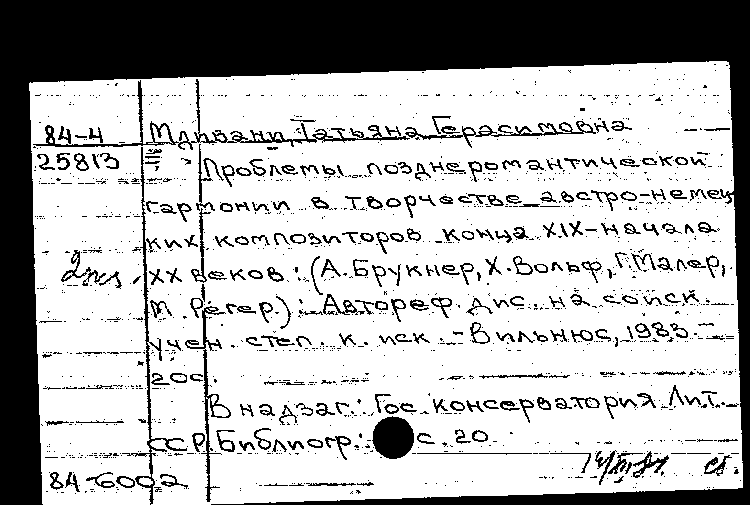 84-4 Мдивани, Татьяна Герасимовна
25813 Проблемы позднеромантической
гармонии в творчестве австро-немец
ких композиторов конца XIX-начала
2 экз. XX веков: (А. Брукнер, Х. Вольф, Г. Малер,
М. Регер.): Автореф. дис. на соиск.
учен. степ. к. иск. - Вильнюс, 1983. -
20с.
В надзаг.: Гос. консерватория Лит.
ССР. Библиогр.: с. 20
84-6002